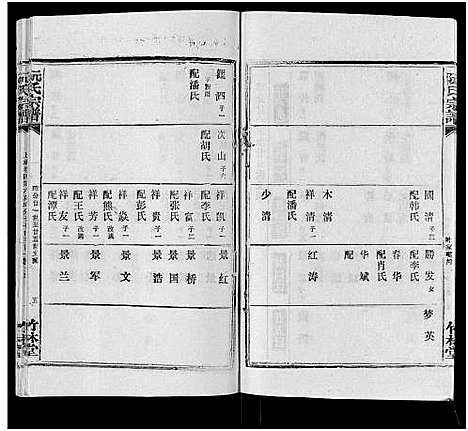 阮氏宗譜
國清 子三
配韩氏
木清
祥清 子一
配潘氏
少清
勝发 女
配李氏
春华
配肖氏
华斌
配
红涛
梦英
竹林堂
阮氏宗譜
觀泗 子一
配潘氏
次山
配胡氏
祥凯 子一
配李氏
祥富 子二
配张氏
祥贵 子一
配彭氏
祥焱 子一
配熊氏
祥芳 子一
配王氏
祥友 子一
配谭氏
景红
景桥
景国
景浩
景文
景军
景兰
五
竹林堂